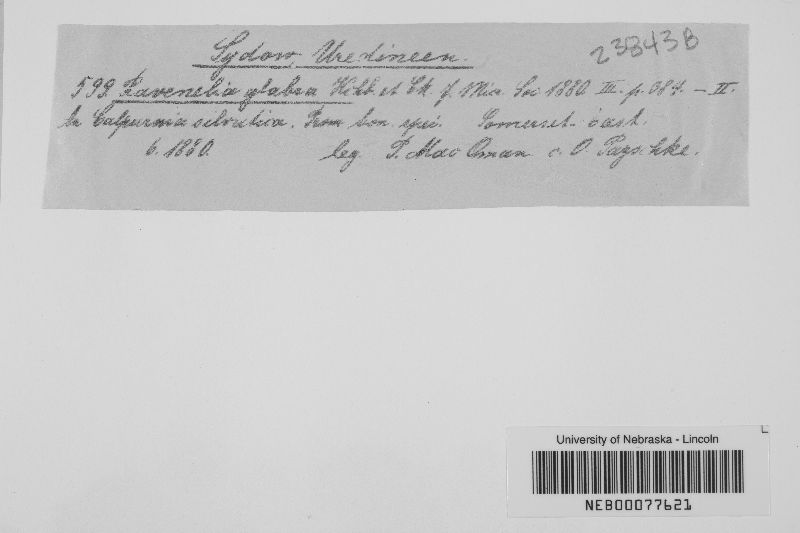 Sydow, Uredineen. 238438
599. Ravenelia glabra Kalk. et Ck. f. Micr Soc 1880 III. p. 384. — II.
In Calpurnia silvatica. Prom. bon. spei. Somerset-East.
6. 1880. leg. P. Mac Owan c. O Pazschke.
University of Nebraska - Lincoln
NEB00077621